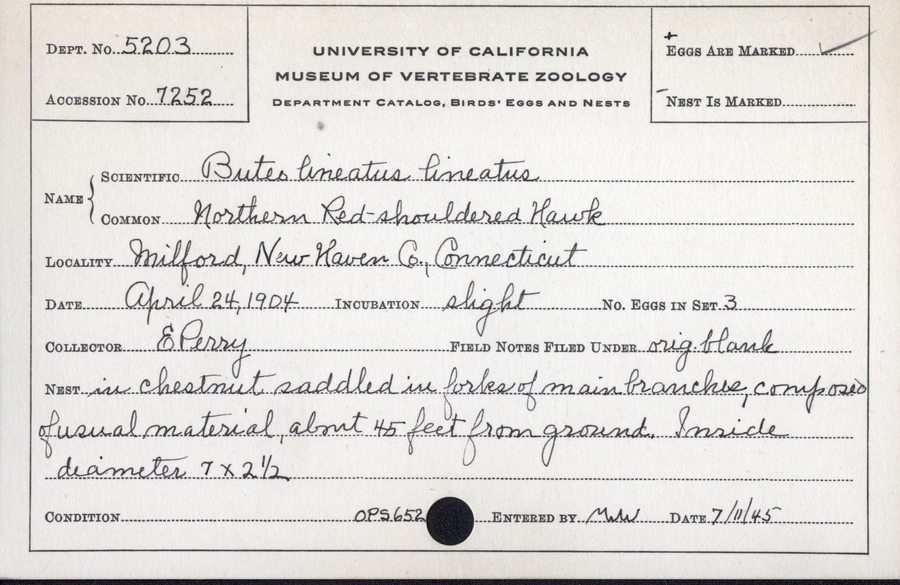 DEPT. No. 5203
ACCESSION No. 7252
UNIVERSITY OF CALIFORNIA
MUSEUM OF VERTEBRATE ZOOLOGY
DEPARTMENT CATALOG, BIRDS' EGGS AND NESTS
+ EGGS ARE MARKED ✓
- NEST IS MARKED
NAME { SCIENTIFIC Buteo lineatus lineatus
COMMON Northern Red-shouldered Hawk
LOCALITY Milford, New Haven Co., Connecticut
DATE April 24, 1904 INCUBATION slight No. EGGS IN SET 3
COLLECTOR E Perry FIELD NOTES FILED UNDER orig. blank
NEST in chestnut saddled in forks of main branches, composed
of usual material, about 45 feet from ground. Inside
diameter 7 x 2 1/2
CONDITION OPS652 ENTERED BY DATE 7/11/45